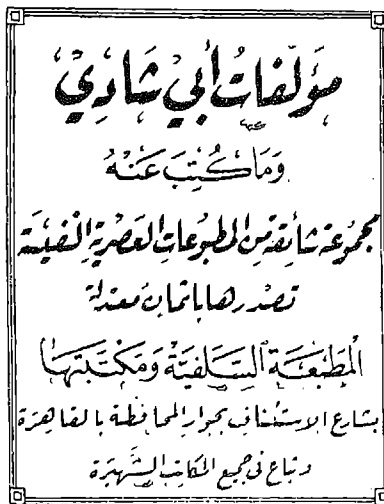 مؤلفات أبي شادي
وَمَا كُتِبَ عَنْهُ
مجموعة شائقة من المطبوعات العصرية النفيسة
تصدرها باثمان معتدلة
المَطبَعَة السَّلَفيَّة وَمَكتَبَتهَا
بشارع الاستئناف بجوار المحافظة بالقاهرة
وتباع في جميع المكاتب الشهيرة